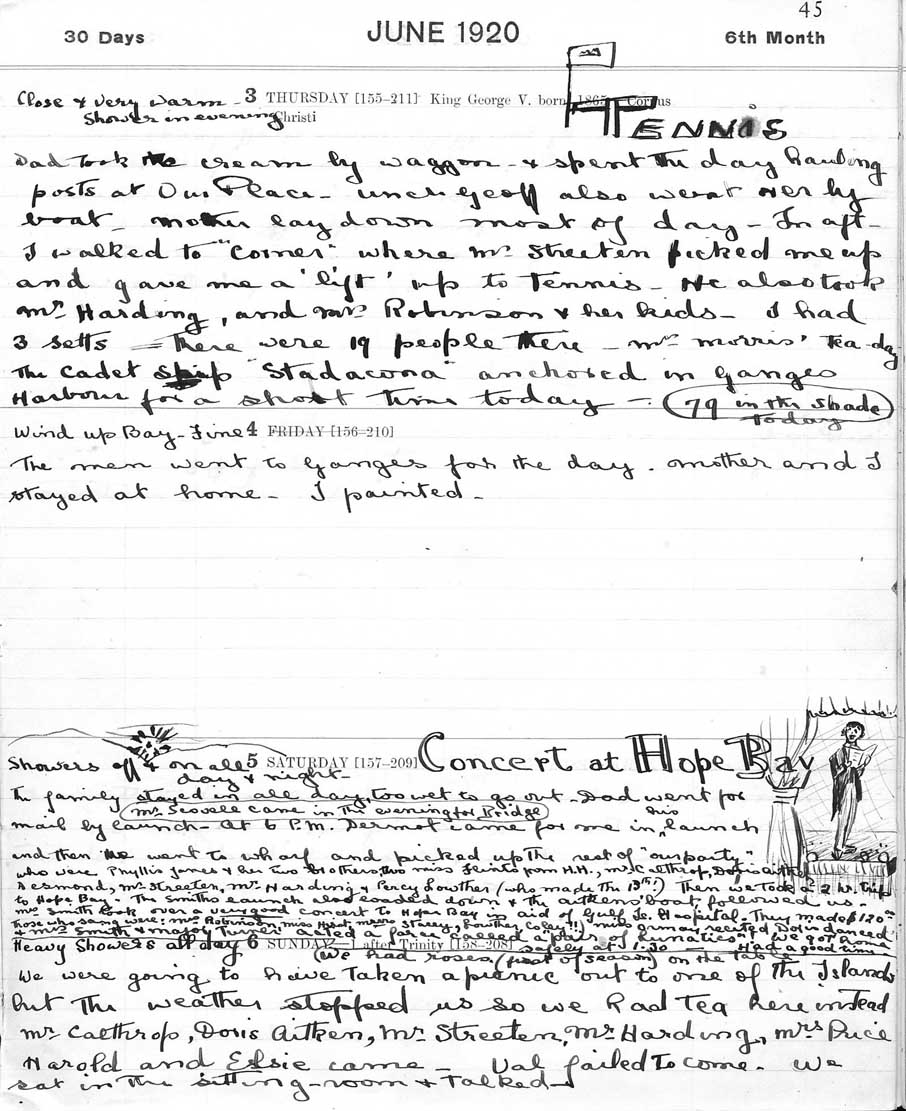 45
30 Days JUNE 1920 6th Month
Close & very warm - 3 THURSDAY [155-211] King George V. born 1865 Corpus
Shower in evening Christi
TENNIS
Dad took the cream by waggon - & spent the day hauling
posts at Our Place - uncle Geoff also went over by
boat - mother lay down most of day - In aft -
I walked to "Corner" where Mr Streeten picked me up
and gave me a 'lift' up to Tennis - He also took
Mr Harding, and Mrs Robinson & her kids - I had
3 setts - There were 19 people there - Mrs Morris' Tea-day
The Cadet Ship "Stadacona" anchored in Ganges
Harbour for a short time today - . 79 in the shade
today
Wind up Bay - Fine 4 FRIDAY [156-210]
The men went to Ganges for the day. Mother and I
stayed at home - I painted -
Showers off & on all 5 SATURDAY [157-209] Concert at Hope Bay
day & night -
The family stayed in all day, too wet to go out - Dad went for
(Mr Scovell came in the evening for Bridge)
mail by launch - At 6 P.M. Dermot came for me in his launch
and then we went to wharf and picked up the rest of "our party"
who were Phyllis Jones & her two brothers, two miss Flints from H.H., Mr Calthrop, Doris Aitken
Desmond, Mr Streeten, Mr Harding & Percy Lowther (who made the 13th!) Then we took a 2 hr. trip
to Hope Bay - The Smiths launch also loaded down & the Aitkens' boat followed us -
Mrs Smith took over a very good concert to Hope Bay in aid of Gulf Is. Hospital - They made $120.00
Those who sang were: Mrs Robinson, Miss Hirst, Messrs Stacey, Lowther, Coley!!) recited Doris danced
& Mrs Smith & Major Turner acted a farce called "a pair of Lunatics" - We got home
safely at 1.30 - Had a good time
Heavy Showers all day 6 SUNDAY - 1 after Trinity [158-208]
(We had roses (first of season) on the table
We were going to have taken a picnic out to one of the Islands
but the weather stopped us so we had Tea here instead
Mr Calthrop, Doris Aitken, Mr Streeten, Mr Harding, Mrs Price
Harold and Elsie came - Val failed to come. We
sat in the sitting-room & talked -